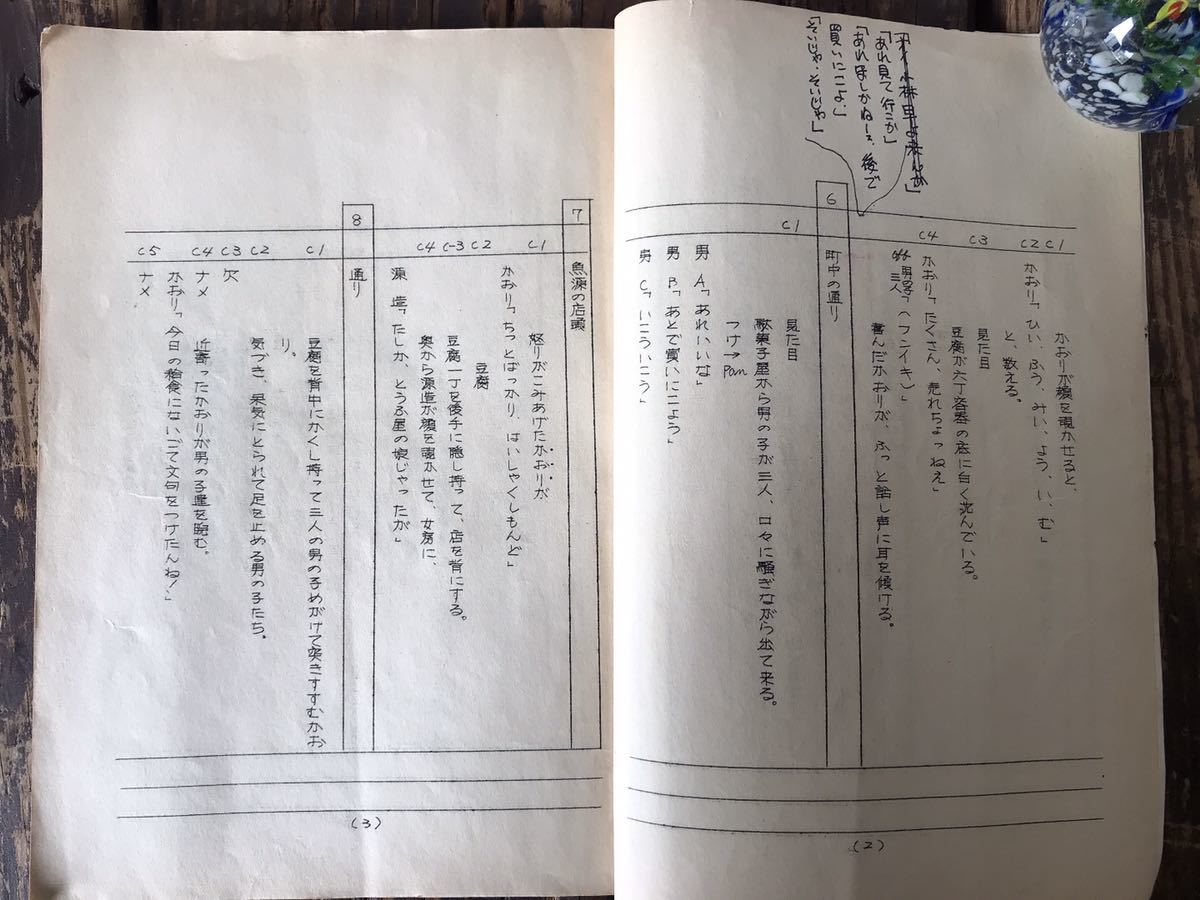 「あれ見て行こか」
「あれほしかねー、後で
買いにこよ」
「そいじゃ、そいじゃ」
C1
かおりが顔を覗かせると、
C2
かおり「ひい、ふう、みい、よう、い、む」
と、数える。
C3
見た目
豆腐が六丁容器の底に白く沈んでいる。
C4
かおり「たくさん、売れちょっねえ」
男の子三人「(フンイキ)」
喜んだかおりが、ふっと話し声に耳を傾ける。
6
町中の通り
C1
見た目
駄菓子屋から男の子が三人、口々に騒ぎながら出て来る。
つけ→Pan
男 A「あれいいな」
男 B「あとで買いにこよう」
男 C「いこういこう」
(2)
7
魚源の店頭
C1
怒りがこみあげたかおりが
かおり「ちっとばっかり、はいしゃくしもんど」
C2
豆腐
C-3
豆腐一丁を後手に隠し持って、店を背にする。
C4
奥から源造が顔を覗かせて、女房に、
源 造「たしか、とうふ屋の娘じゃったが」
8
通り
C1
豆腐を背中にかくし持って三人の男の子めがけて突きすすむかお
り。
C2
気づき、呆気にとられて足を止める男の子たち。
C3
欠
C4
ナメ
近寄ったかおりが男の子達を睨む。
かおり「今日の給食にないごて文句をつけたんね!」
C5
ナメ
(3)